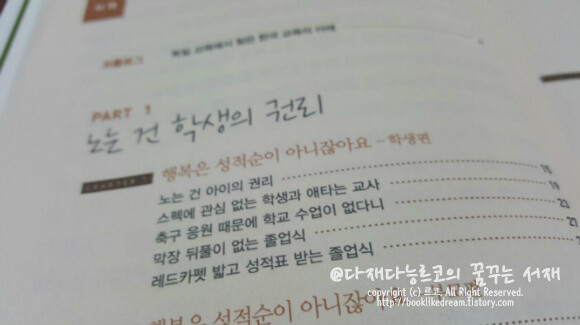 프롤로그 독일 교육에서 찾은 한국 교육의 미래
PART 1
노는 건 학생의 권리
CHAPTER 1 행복은 성적순이 아니잖아요 - 학생편
노는 건 아이의 권리 18
스펙에 관심 없는 학생과 애타는 교사 19
축구 응원 때문에 학교 수업이 없다니
막장 뒤풀이 없는 졸업식
레드카펫 밟고 성적표 받는 졸업식
행복은 성적순이 아니잖아요
@다재다능르코의 꿈꾸는 서재
copyright (c) 르코. All Right Reserved.
http://booklikedream.tistory.com